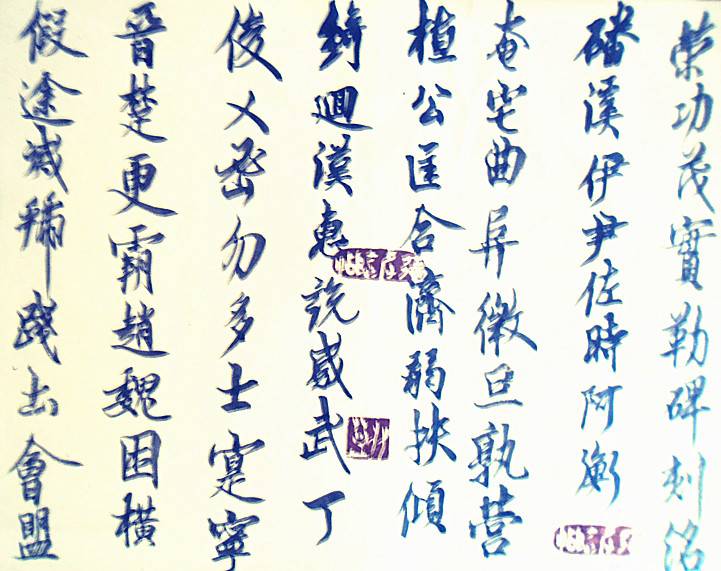 策功茂實勒碑刻銘
磻溪伊尹佐時阿衡
奄宅曲阜微旦孰營
桓公匡合濟弱扶傾
綺迴漢惠說感武丁
俊乂密勿多士寔寧
晉楚更霸趙魏困橫
假途滅虢踐土會盟